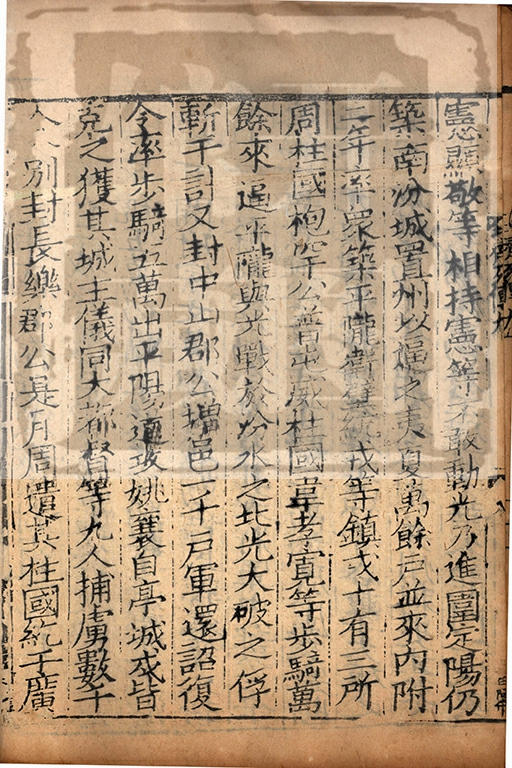 憲顯敬等相持憲等不敢動光乃進圍定陽仍
築南汾城置州以逼之夷夏萬餘戶並來內附
二年率衆築平隴衛壁統戎等鎮戍十有三所
周柱國枹罕公普屯威柱國韋孝寬等步騎萬
餘來逼平隴與光戰於汾水之北光大破之俘
斬千計又封中山郡公增邑一千戶軍還詔復
令率步騎五萬出平陽道攻姚襄白亭城戍皆
克之獲其城主儀同大都督等九人捕虜數千
人 別封長樂郡公是月周遣其柱國紇干廣